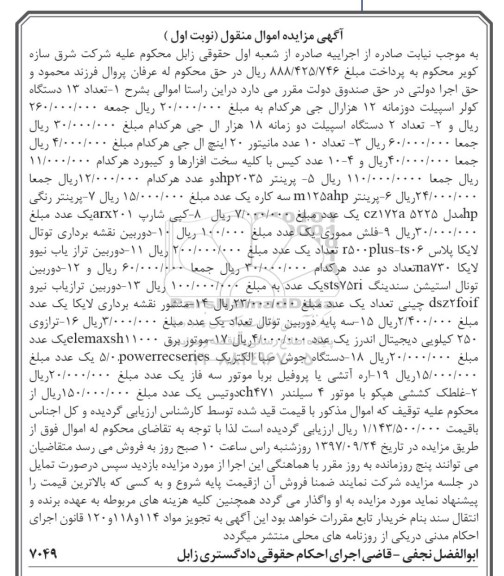 آگهی مزایده اموال منقول (نوبت اول )
به موجب نیابت صادره از اجراییه صادره از شعبه اول حقوقی زابل محکوم علیه شرکت شرق سازه
کویر محکوم به پرداخت مبلغ ۸۸۸/۴۲۵/۷۴۶ ریال در حق محکوم له عرفان پروال فرزند محمود و
حق اجرا دولتی در حق صندوق دولت مقرر می دارد دراین راستا اموالی بشرح ۱-تعداد ۱۳ دستگاه
کولر اسپیلت دوزمانه ۱۲ هزارال جی هرکدام به مبلغ ۲۰/۰۰۰/۰۰۰ ریال جمعه ۲۶۰/۰۰۰/۰۰۰
ریال و ۲- تعداد ۲ دستگاه اسپیلت دو زمانه ۱۸ هزار ال جی هرکدام مبلغ ۳۰/۰۰۰/۰۰۰ ریال
جمعا ۶۰/۰۰۰/۰۰۰ ریال ۳- تعداد ۱۰ عدد مانیتور ۲۰ اینچ ال جی هرکدام مبلغ ۴/۰۰۰/۰۰۰ ریال
جمعا ۴۰/۰۰۰/۰۰۰ریال و ۴-۱۰ عدد کیس با کلیه سخت افزارها و کیبورد هرکدام ۱۱/۰۰۰/۰۰۰
ریال جمعا ۱۱۰/۰۰۰/۰۰۰ ریال ۵- پرینتر hp۲۰۳۵دو عدد هرکدام ۱۲/۰۰۰/۰۰۰ریال جمعا
۲۴/۰۰۰/۰۰۰ریال ۶-پرینتر m۱۲۵ahp سه کاره یک عدد مبلغ ۱۵/۰۰۰/۰۰۰ ریال ۷-پرینتر رنگی
hpمدل ۵۲۲۵ cz۱۷۲a یک عدد مبلغ ۷/۰۰۰/۰۰۰ ریال ۸-کپی شارپ arx۲۰۱یک عدد مبلغ
۳۰/۰۰۰/۰۰۰ریال ۹-فلش مموری یک عدد مبلغ ۱۰۰/۰۰۰ ریال ۱۰-دوربین نقشه برداری توتال
لایکا پلاس r۵۰۰plus-ts۰۶ تعداد یک عدد مبلغ ۲۰۰/۰۰۰/۰۰۰ ریال ۱۱-دوربین تراز یاب نیوو
لایکا na۷۳۰تعداد دو عدد هرکدام ۳۰/۰۰۰/۰۰۰ ریال جمعا ۶۰/۰۰۰/۰۰۰ ریال و ۱۲-دوربین
توتال استیشن سندینگ sts۷۵riیک عدد به مبلغ ۱۰۰/۰۰۰/۰۰۰ ریال ۱۳-دوربین ترازیاب نیرو
dsz۲foif چینی تعداد یک عدد مبلغ ۲۳/۰۰۰/۰۰۰ریال ۱۴-منشور نقشه برداری لایکا یک عدد
مبلغ ۲/۴۰۰/۰۰۰ریال ۱۵-سه پایه دوربین توتال تعداد یک عدد مبلغ ۳/۰۰۰/۰۰۰ریال ۱۶-ترازوی
۲۵۰ کیلویی دیجیتال اندرز یک عدد ۴/۰۰۰/۰۰۰ریال ۱۷-موتور برق elemaxsh۱۱۰۰۰یک عدد
مبلغ ۲۰/۰۰۰/۰۰۰ریال ۱۸-دستگاه جوش صبا الکتریک powerrecseries۵/۰۰ یک عدد مبلغ
۱۵/۰۰۰/۰۰۰ریال ۱۹-اره آتشی یا پروفیل بربا موتور سه فاز یک عدد مبلغ ۲۰/۰۰۰/۰۰۰ریال
۲-غلطک کششی هپکو با موتور ۴ سیلندر ch۴۷۱دوتیس یک عدد مبلغ ۱۵۰/۰۰۰/۰۰۰ریال از
محکوم علیه توقیف که اموال مذکور با قیمت قید شده توسط کارشناس ارزیابی گردیده و کل اجناس
باقیمت ۱/۱۴۳/۵۰۰/۰۰۰ ریال ارزیابی گردیده است لذا با توجه به تقاضای محکوم له اموال فوق از
طریق مزایده در تاریخ ۱۳۹۷/۰۹/۲۴ روزشنبه راس ساعت ۱۰ صبح روز به فروش می رسد متقاضیان
می توانند پنج روزمانده به روز مقرر با هماهنگی این اجرا از مورد مزایده بازدید سپس درصورت تمایل
در جلسه مزایده شرکت نمایند ضمنا فروش آن ازقیمت پایه شروع و به کسی که بالاترین قیمت را
پیشنهاد نماید مورد مزایده به او واگذار می گردد همچنین کلیه هزینه های مربوطه به عهده برنده و
انتقال سند بنام خریدار تابع مقررات خواهد بود این آگهی به تجویز مواد ۱۱۴و۱۱۸و۱۲۰ قانون اجرای
احکام مدنی دریکی از روزنامه های محلی منتشر میگردد
ابوالفضل نجفی - قاضی اجرای احکام حقوقی دادگستری زابل ۷۰۴۹